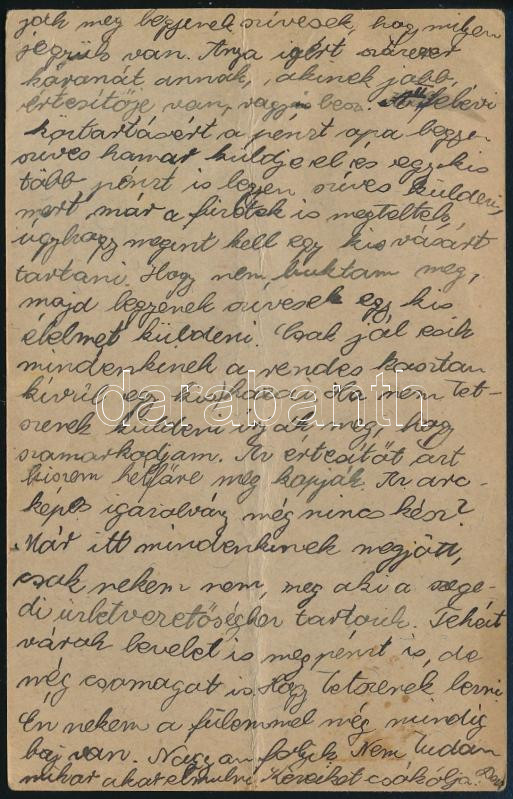 ják meg legyenek szívesek, hogy milyen
jegyük van. Anya igért százezer
káranát annak, akinek jobb
értesítője van, vagyis lesz. A februári
köztartásért a pénzt apa legyen
szíves hamar küldje el és egy kis
több pénzt is legyen szíves küldeni,
mert már a füzetek is megteltek,
úgyhogy megint kell egy kis vásárt
tartani. Hogy nem buktam meg,
majd legyenek szívesek egy kis
élelmet küldeni. Csak jól esik
mindenkinek a rendes koszton
kívül egy kis hazai. Ha nem tet-
szenek küldeni írják meg, hogy
ne szamarkodjam. Az értesítőt azt
hiszem hétfőre meg kapják. Az arc-
képes igazolvány még nincs kész?
Már itt mindenkinek megjött,
csak nekem nem, meg aki a szege-
di üzletvezetőséghez tartozik. Tehát
várok levelet is meg pénzt is, de
még csomagot is. Hogy tetszenek lenni
Én nekem a fülemmel még mindig
baj van. Nagyon folyik. Nem tudom
mikor akar elmulni. Kezeiket csókolja
darabanth